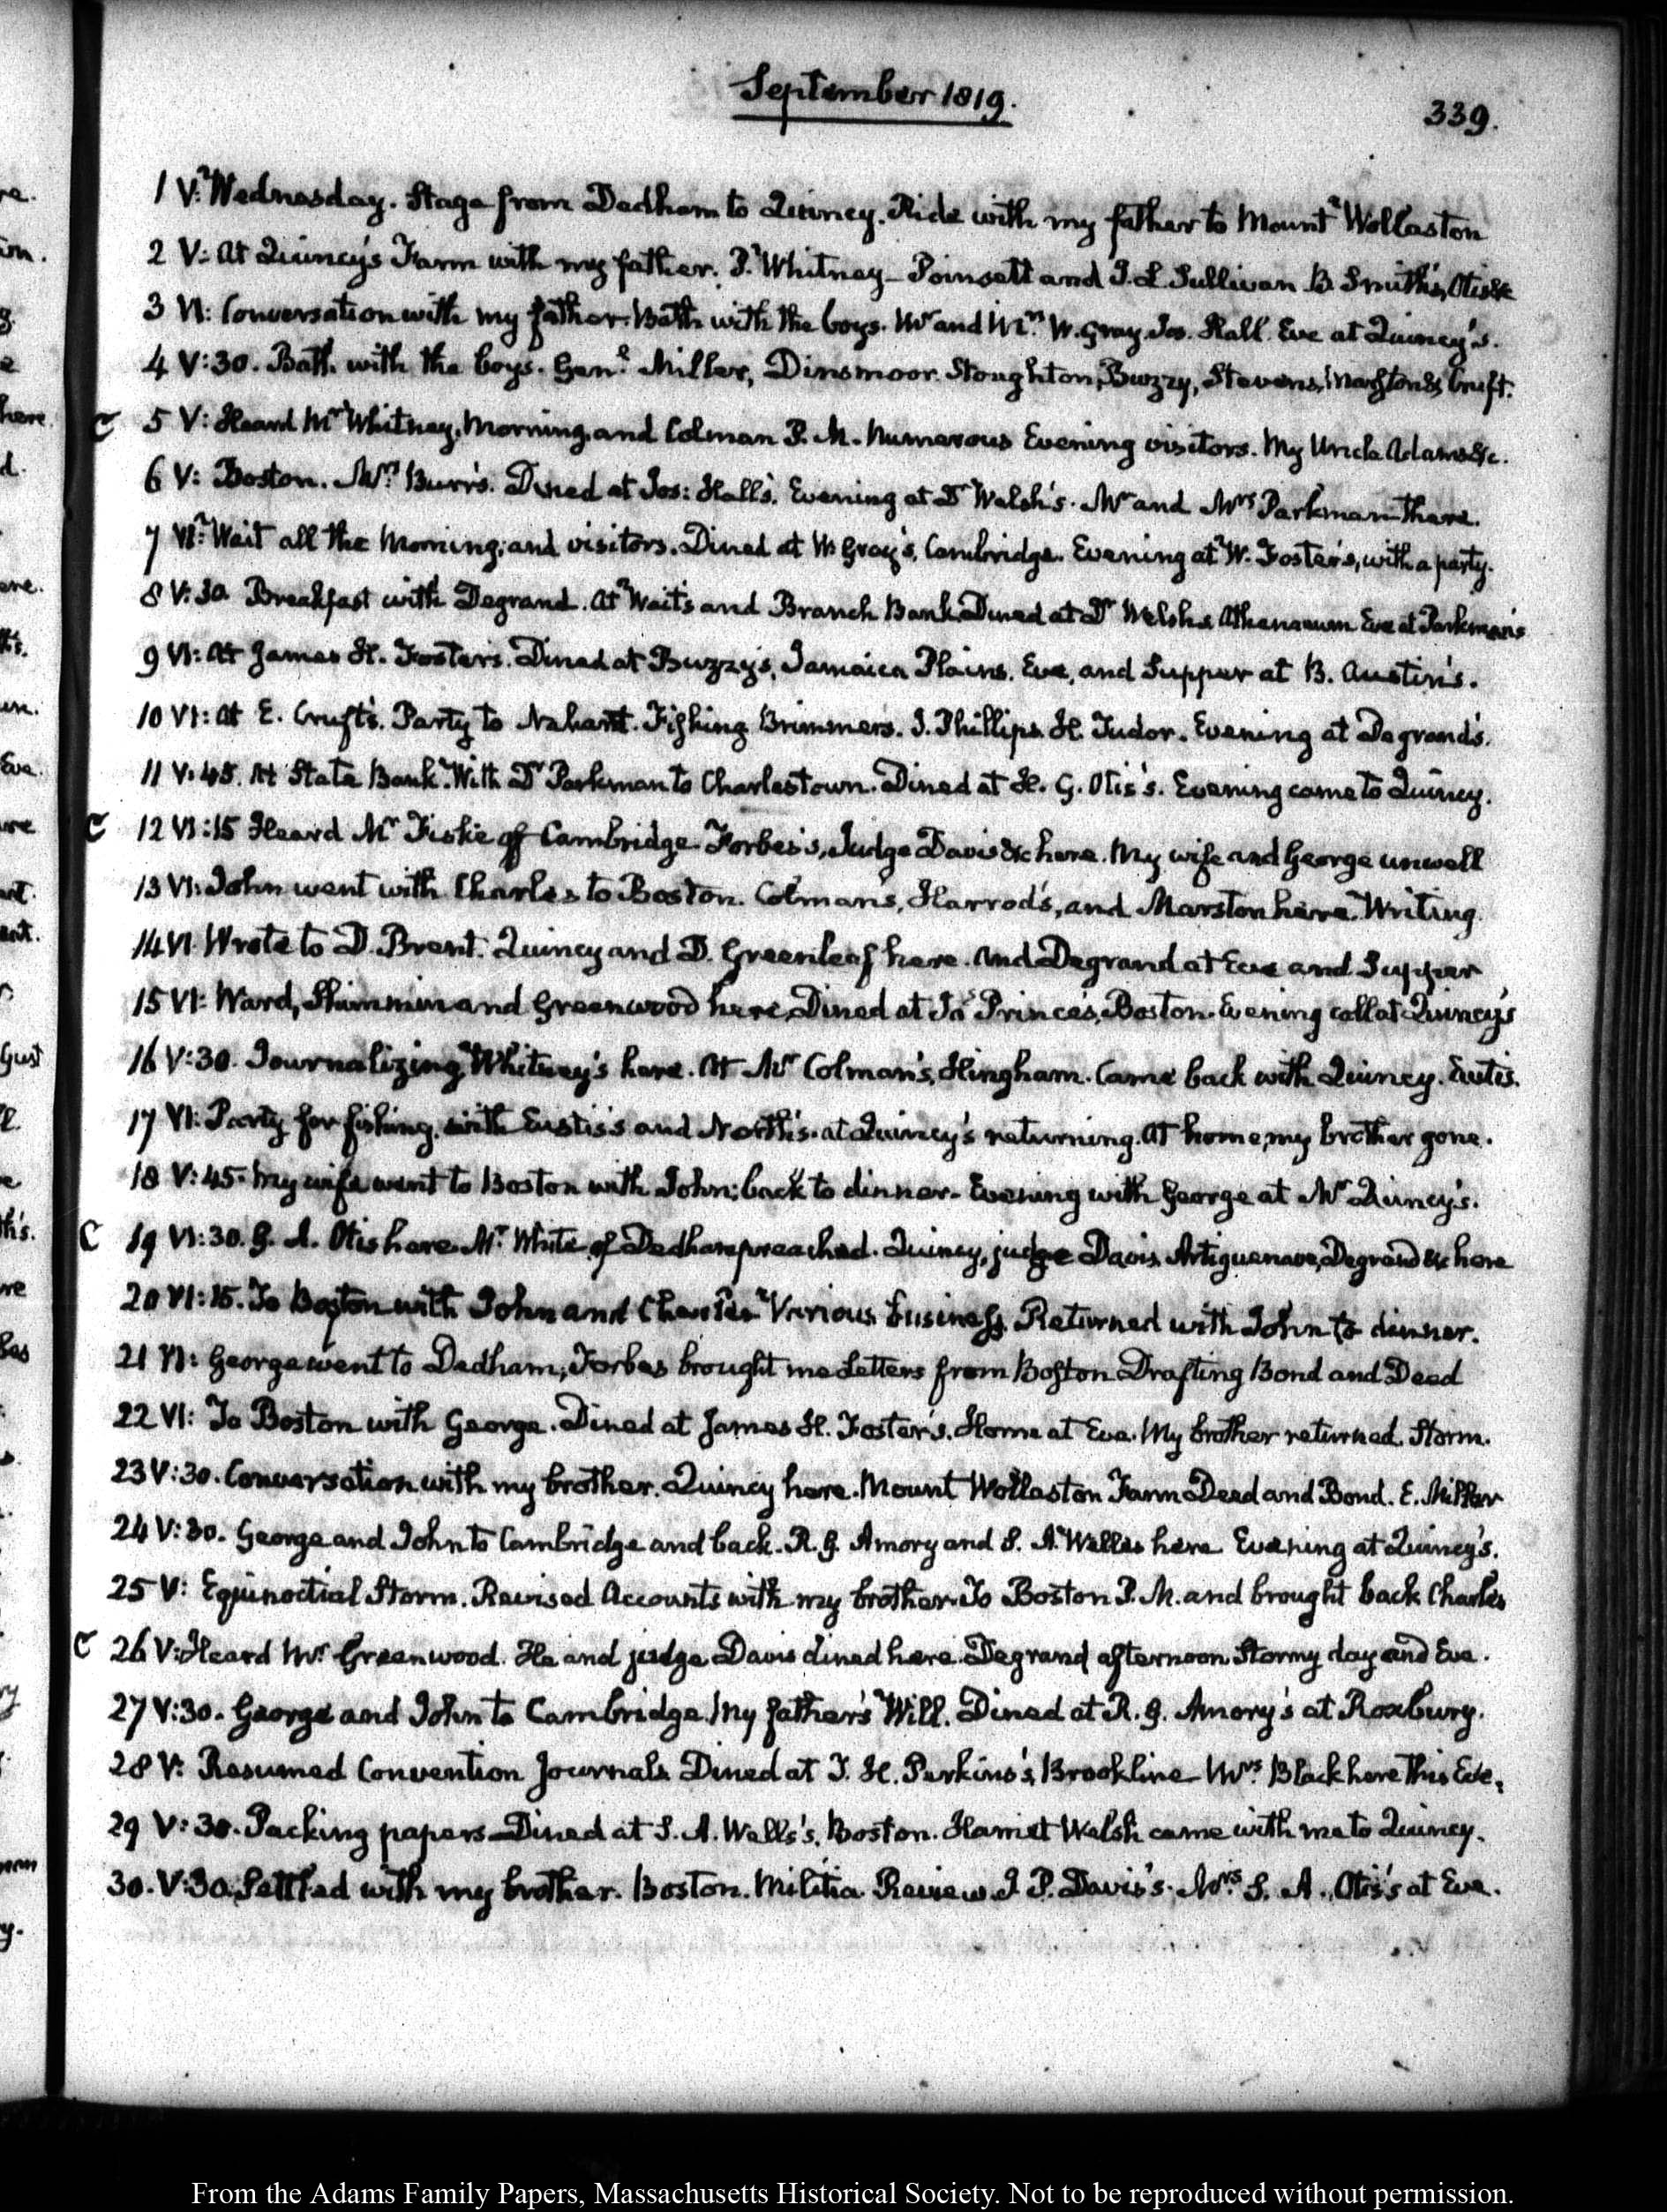 September 1819.
339.
1 V: Wednesday. Stage from Dedham to Quincy. Ride with my father to Mount Wollaston
2 V: At Quincy's Farm with my father. P. Whitney Poinsett and J. L Sullivan B Smith's, Otis &c
3 VI: Conversation with my father. Bath with the boys. Mr and Mrs W. Gray Jos. Hall. Eve at Quincy's.
4 V:30. Bath with the boys. Genl Miller, Dinsmoor. Stoughton, Buzzy, Stevens, Marston &c Cruft.
C 5 V: Heard Mr Whitney, Morning, and Colman P. M. Numerous Evening visitors. My Uncle Adams &c.
6 V: Boston. Mrs Burr's. Dined at Jos: Hall's. Evening at Dr Welsh's. Mr and Mrs Parkman there.
7 VI: Wait all the Morning; and visitors. Dined at W Gray's, Cambridge. Evening at W. Foster's, with a party.
8 V:30 Breakfast with Degrand. At Wait's and Branch Bank. Dined at Dr Welsh's Athenaeum Eve at Parkman's
9 VI: At James H. Foster's. Dined at Buzzy's, Jamaica Plains. Eve, and Supper at B. Austin's.
10 VI: At E. Cruft's. Party to Nahant. Fishing Brimmers. J. Phillips. H. Tudor. Evening at Degrand's.
11 V:45. At State Bank. With Dr Parkman to Charlestown. Dined at H. G. Otis's. Evening came to Quincy.
C 12 VI:15 Heard Mr Fiske of Cambridge. Forbes's, Judge Davis &c here. My wife and George unwell
13 VI: John went with Charles to Boston. Colman's, Harrod's, and Marston here. Writing.
14 VI Wrote to D. Brent. Quincy and D. Greenleaf here. And Degrand at Eve and Supper
15 VI: Ward, Shimmin and Greenwood here, Dined at Js Prince's, Boston. Evening call at Quincy's
16 V:30. Journalizing. Whitney's here. At Mr Colman's, Hingham. Came back with Quincy.
17 VI: Party for fishing, with Eustis's and North's. at Quincy's returning. At home, my brother gone.
18 V:45. My wife went to Boston with John; back to dinner. Evening with George at Mr Quincy's.
C 19 VI:30. G. A. Otis here. Mr White of Dedham preached. Quincy, judge Davis, Artiguenave, Degrand &c here
20 VI:15. To Boston with John and Charles Various business. Returned with John to dinner.
21 VI: George went to Dedham, Forbes brought me Letters from Boston Drafting Bond and Deed
22 VI: To Boston with George. Dined at James H. Foster's. Home at Eve. My brother returned. Storm.
23 V:30. Conversation with my brother. Quincy here. Mount Wollaston Farm Deed and Bond. E. Miller
24 V:30. George and John to Cambridge and back. R. G. Amory and S. A. Welles here Evening at Quincy's.
25 V: Equinoctial Storm. Revised Accounts with my brother. To Boston P. M. and brought back Charles
C 26 V: Heard Mr Greenwood. He and judge Davis dined here. Degrand afternoon Stormy day and Eve.
27 V:30. George and John to Cambridge. My father's Will. Dined at R. G. Amory's at Roxbury.
28 V: Resumed Convention Journals. Dined at T. H. Perkins's, Brookline Mrs Black here this Eve.
29 V:30. Packing papers. Dined at S. A. Wells's, Boston. Harriet Welsh came with me to Quincy.
30. V:30. Settled with my brother. Boston. Militia Review. I. P. Davis's. Mrs S. A. Otis's at Eve.
From the Adams Family Papers, Massachusetts Historical Society. Not to be reproduced without permission.